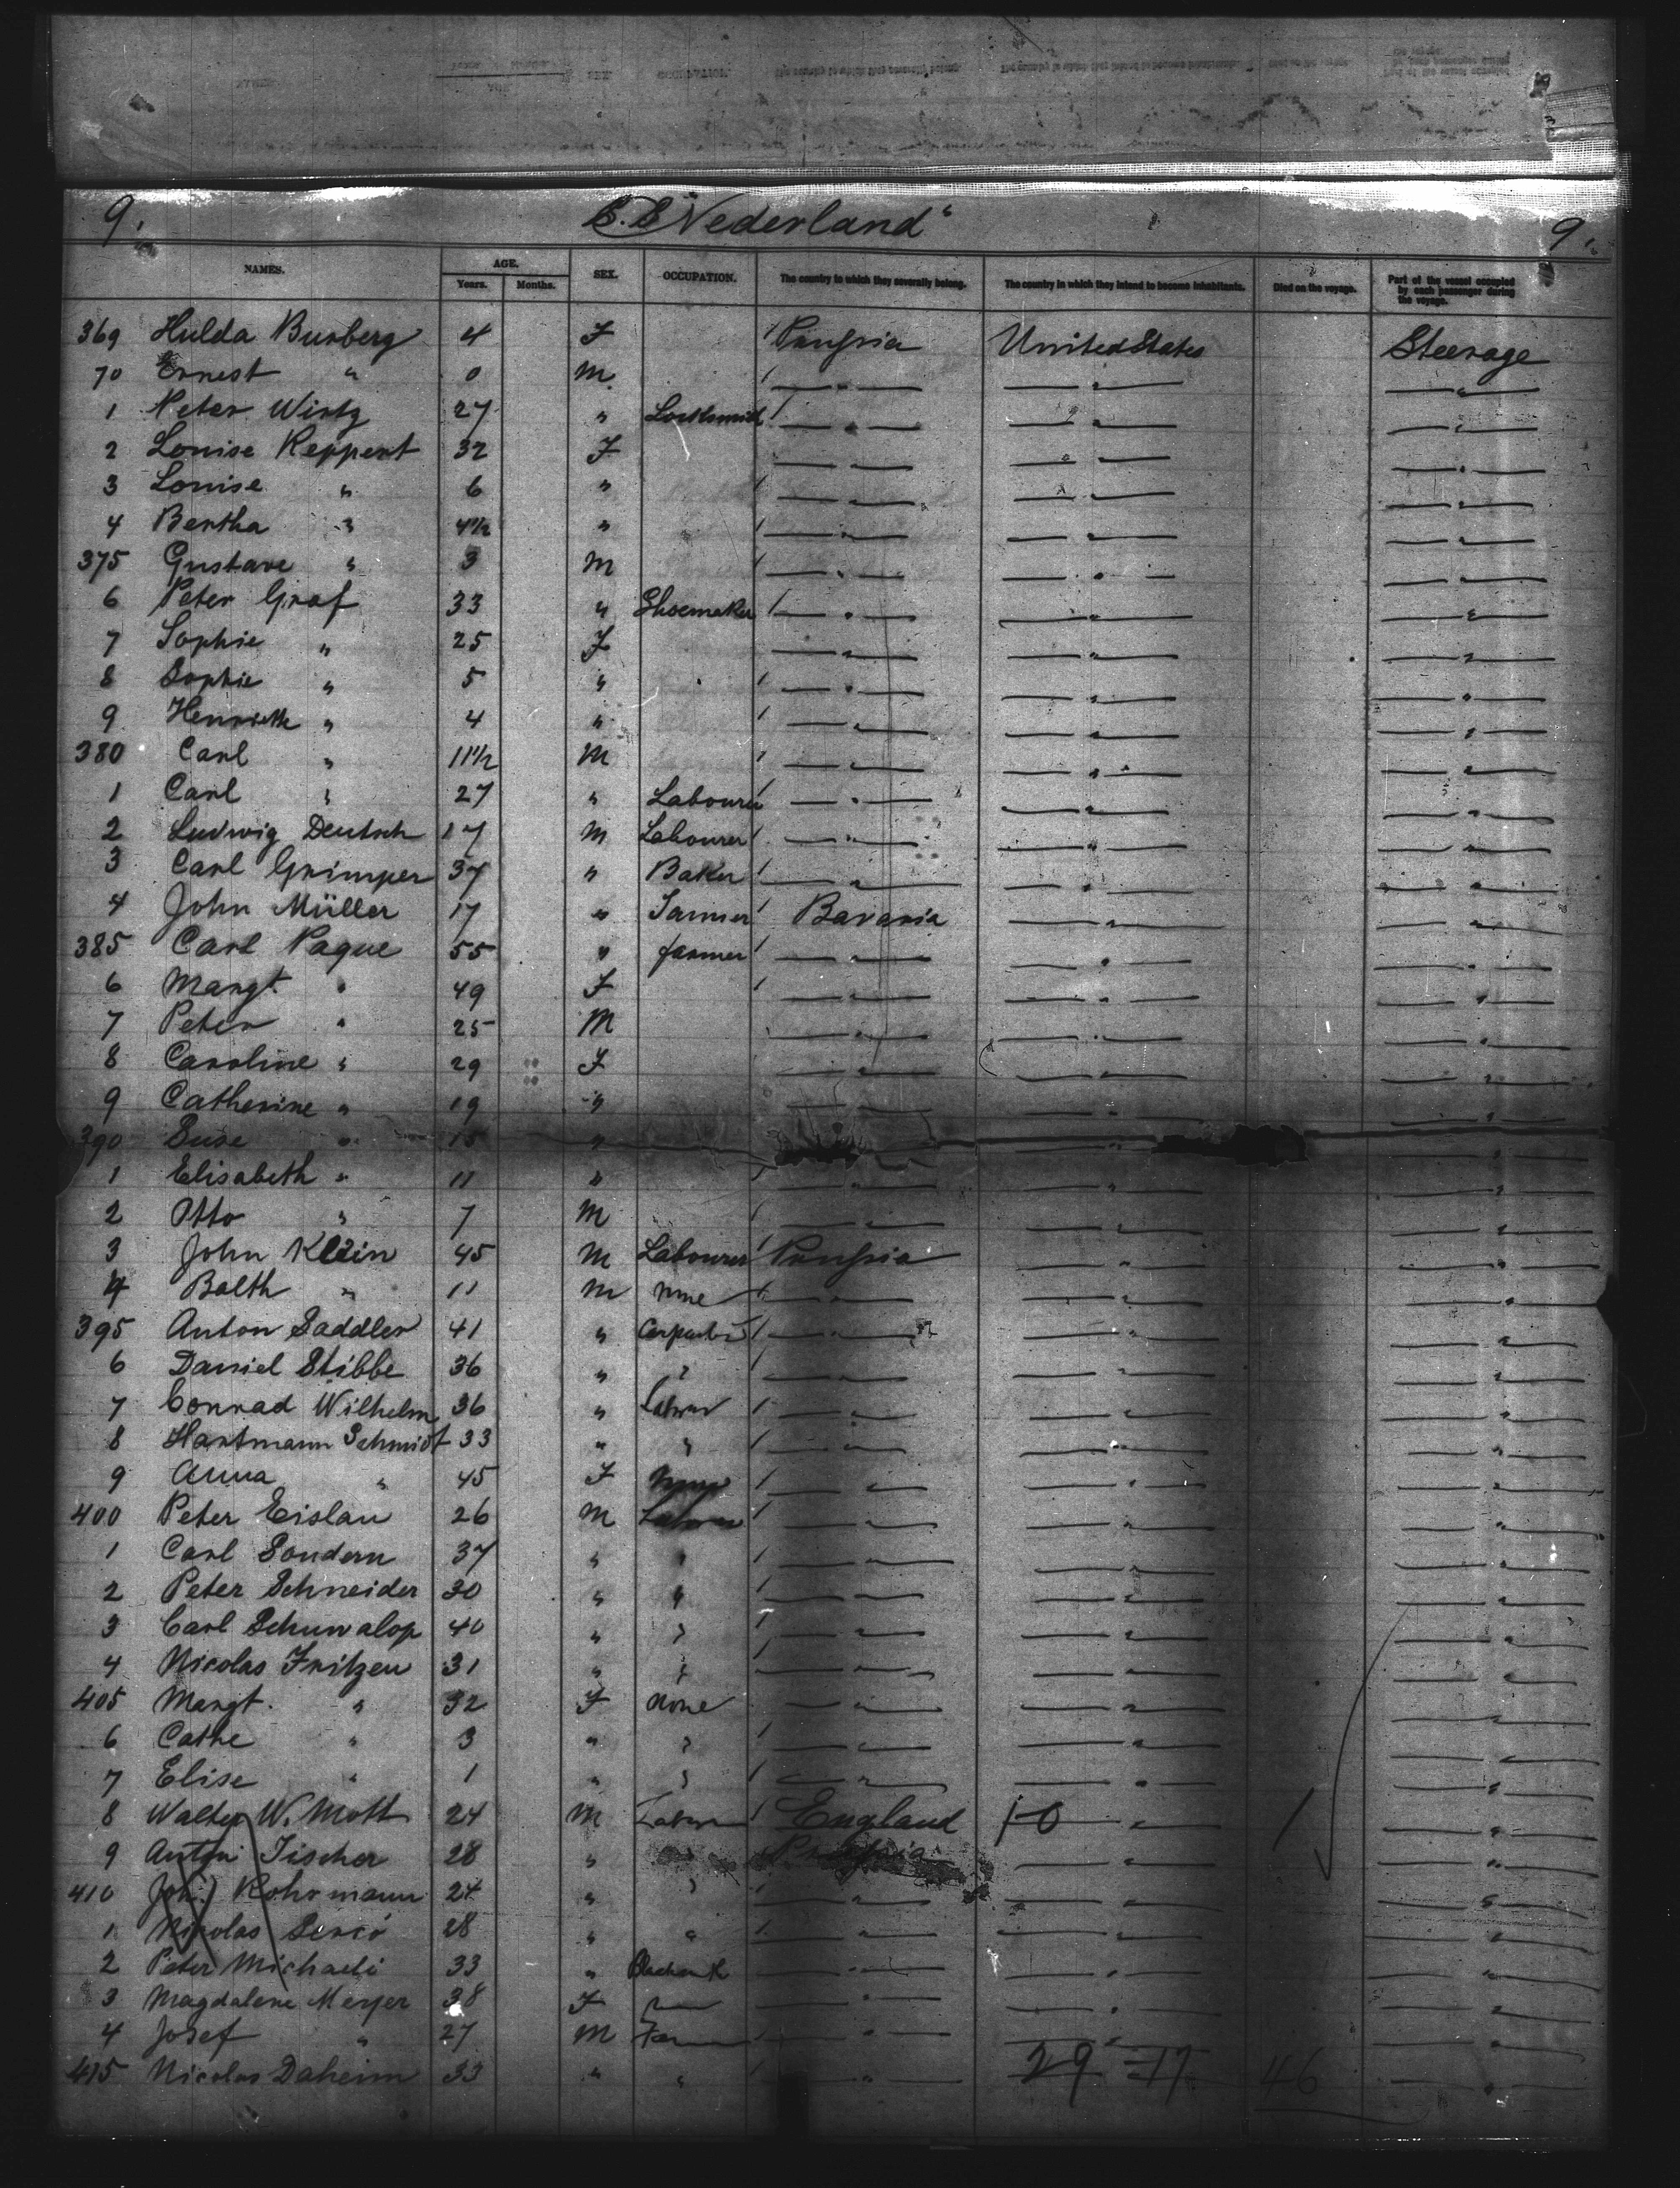 9. S.S "Nederland" 9.
NAMES. AGE. Years. Months. SEX. OCCUPATION. The country to which they severally belong. The country in which they intend to become inhabitants. Died on the voyage. Part of the vessel occupied by each passenger during the voyage.
369 Hulda Burberg 4 F / Prussia United States Steerage
70 Ernest " 0 M / — " — — " — — " —
1 Peter Wirtz 27 " Locksmith / — " — — " — — " —
2 Louise Reppert 32 F — " — — " — — " —
3 Louise " 6 " / — " — — " — — " —
4 Bertha " 4 1/2 " / — " — — " — — " —
375 Gustave " 3 M / — " — — " — — " —
6 Peter Graf 33 " Shoemaker / — " — — " — — " —
7 Sophie " 25 F — " — — " — — " —
8 Sophie " 5 " / — " — — " — — " —
9 Henriette " 4 " / — " — — " — — " —
380 Carl " 11 1/2 M / — " — — " — — " —
1 Carl " 27 " Labourer / — " — — " — — " —
2 Ludwig Deutsch 17 M Labourer / — " — — " — — " —
3 Carl Grimper 37 " Baker / — " — — " — — " —
4 John Müller 17 " / Bavaria — " — — " —
385 Carl Paque 55 " farmer / — " — — " — — " —
6 Margt. " 49 F / — " — — " — — " —
7 Peter " 25 M — " — — " — — " —
8 Caroline " 29 F — " — — " — — " —
9 Catherine " 19 " — " — — " — — " —
390 Suse " 15 " — " — — " —
1 Elisabeth " 11 " / — " — — " — — " —
2 Otto " 7 M / — " — — " — — " —
3 John Klein 45 M Labourer / Prussia — " — — " —
4 Balth " 11 M None / — " — — " — — " —
395 Anton Saddler 41 " Carpenter / — " — — " — — " —
6 Daniel Stibbe 36 " " / — " — — " — — " —
7 Conrad Wilhelm 36 " Labourer / — " — — " — — " —
8 Hartmann Schmidt 33 " " / — " — — " — — " —
9 Anna " 45 F / — " — — " — — " —
400 Peter Eislau 26 M Labourer / — " — — " — — " —
1 Carl Sondern 37 " " / — " — — " — — " —
2 Peter Schneider 30 " " / — " — — " — — " —
3 Carl Schuwalop 40 " " / — " — — " — — " —
4 Nicolas Fritzen 31 " " / — " — — " — — " —
405 Margt. " 32 F None — " — — " — — " —
6 Cathe " 3 " " / — " — — " — — " —
7 Elise " 1 " " / — " — — " — — " —
8 Walter W. Mott 24 M / England 10 — " — — " —
9 Anton Fischer 28 " " Prussia — " — — " —
410 Joh. Kohrmann 24 " " / — " — — " — — " —
1 Nicolas 28 " " / — " — — " — — " —
2 Peter Michaeli 33 " — " — — " — — " —
3 Magdalene Meyer 38 F — " — — " — — " —
4 Josef " 27 M — " — — " — — " —
415 Nicolas Daheim 33 " " / — " — — " —
29 17 46